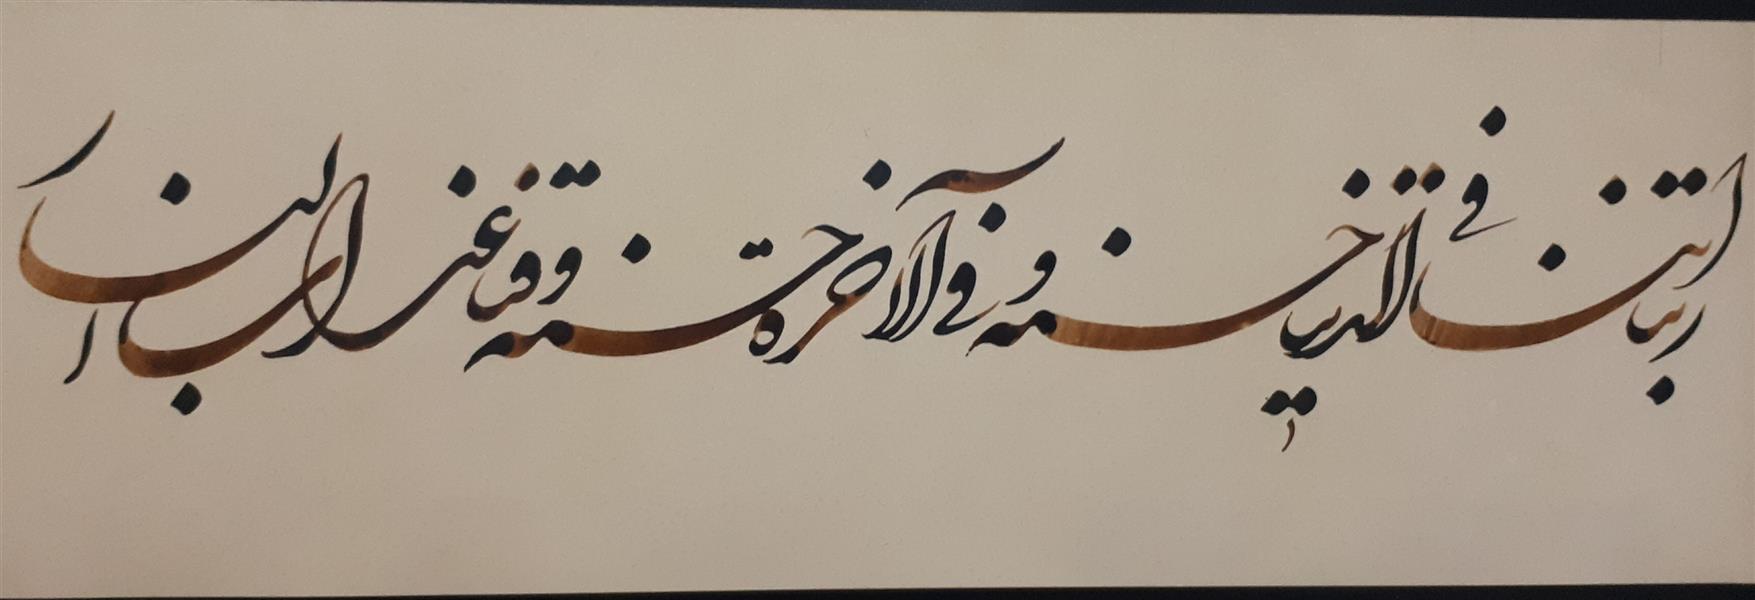 ربنا اتنا فی الدنیا حسنه و فی الآخره حسنه و قنا عذاب النار